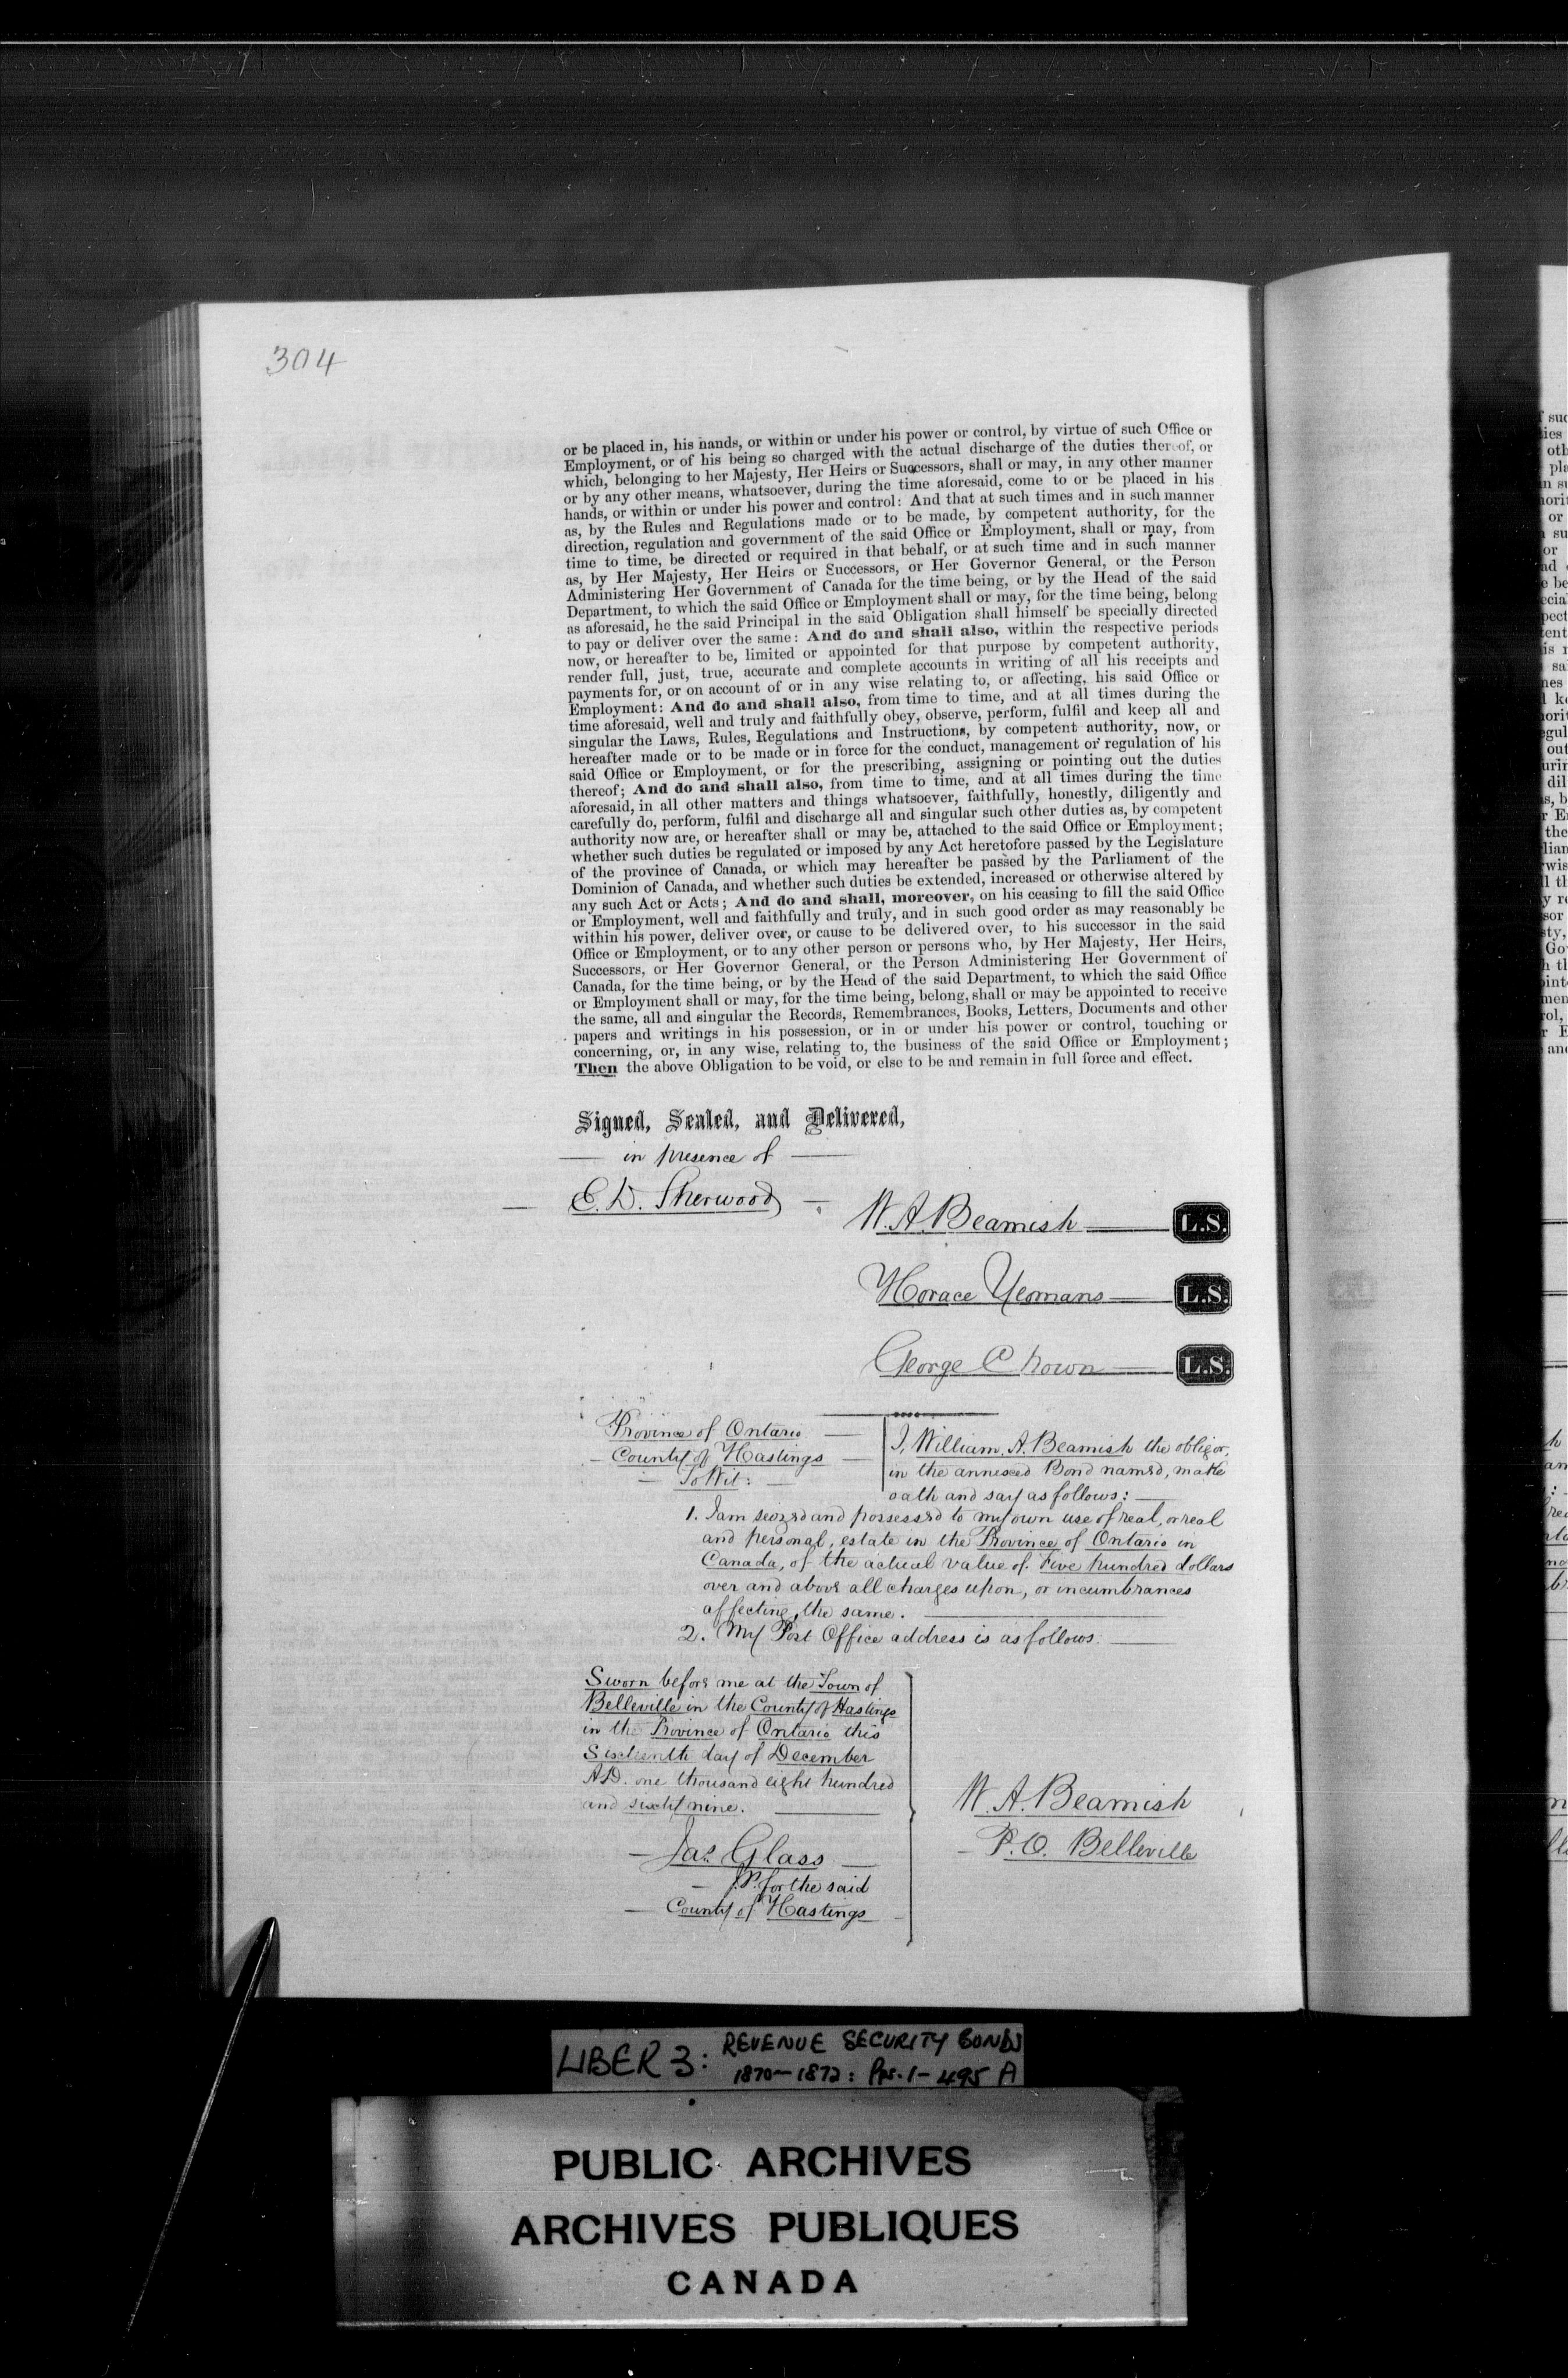 304
or be placed in, his hands, or within or under his power or control, by virtue of such Office or
Employment, or of his being so charged with the actual discharge of the duties thereof, or
which, belonging to her Majesty, Her Heirs or Successors, shall or may, in any other manner
or by any other means, whatsoever, during the time aforesaid, come to or be placed in his
hands, or within or under his power and control: And that at such times and in such manner
as, by the Rules and Regulations made or to be made, by competent authority, for the
direction, regulation and government of the said Office or Employment, shall or may, from
time to time, be directed or required in that behalf, or at such time and in such manner
as, by Her Majesty, Her Heirs or Successors, or Her Governor General, or the Person
Administering Her Government of Canada for the time being, or by the Head of the said
Department, to which the said Office or Employment shall or may, for the time being, belong
as aforesaid, he the said Principal in the said Obligation shall himself be specially directed
to pay or deliver over the same: And do and shall also, within the respective periods
now, or hereafter to be, limited or appointed for that purpose by competent authority,
render full, just, true, accurate and complete accounts in writing of all his receipts and
payments for, or on account of or in any wise relating to, or affecting, his said Office or
Employment: And do and shall also, from time to time, and at all times during the
time aforesaid, well and truly and faithfully obey, observe, perform, fulfil and keep all and
singular the Laws, Rules, Regulations and Instructions, by competent authority, now, or
hereafter made or to be made or in force for the conduct, management or regulation of his
said Office or Employment, or for the prescribing, assigning or pointing out the duties
thereof; And do and shall also, from time to time, and at all times during the time
aforesaid, in all other matters and things whatsoever, faithfully, honestly, diligently and
carefully do, perform, fulfil and discharge all and singular such other duties as, by competent
authority now are, or hereafter shall or may be, attached to the said Office or Employment;
whether such duties be regulated or imposed by any Act heretofore passed by the Legislature
of the province of Canada, or which may hereafter be passed by the Parliament of the
Dominion of Canada, and whether such duties be extended, increased or otherwise altered by
any such Act or Acts; And do and shall, moreover, on his ceasing to fill the said Office
or Employment, well and faithfully and truly, and in such good order as may reasonably be
within his power, deliver over, or cause to be delivered over, to his successor in the said
Office or Employment, or to any other person or persons who, by Her Majesty, Her Heirs,
Successors, or Her Governor General, or the Person Administering Her Government of
Canada, for the time being, or by the Head of the said Department, to which the said Office
or Employment shall or may, for the time being, belong, shall or may be appointed to receive
the same, all and singular the Records, Remembrances, Books, Letters, Documents and other
papers and writings in his possession, or in or under his power or control, touching or
concerning, or, in any wise, relating to, the business of the said Office or Employment;
Then the above Obligation to be void, or else to be and remain in full force and effect.
Signed, Sealed, and Delivered,
in presence of
E. D. Sherwood
W. A. Beamish L.S.
Horace Yeomans L.S.
George Chown L.S.
Province of Ontario
County of Hastings
To Wit:
I, William A. Beamish the obligor,
in the annexed Bond named, make
oath and say as follows:
1. I am seized and possessed to my own use of real, or real
and personal, estate in the Province of Ontario in
Canada, of the actual value of Five hundred dollars
over and above all charges upon, or incumbrances
affecting, the same.
2. My Post Office address is as follows.
Sworn before me at the Town of
Belleville in the County of Hastings
in the Province of Ontario this
Sixteenth day of December
A.D. one thousand eight hundred
and sixty nine.
Jas. Glass
J.P. for the said
County of Hastings
W. A. Beamish
P.O. Belleville
LIBER 3: REVENUE SECURITY BONDS
1870-1872: PPS. 1-495 A
PUBLIC ARCHIVES
ARCHIVES PUBLIQUES
CANADA